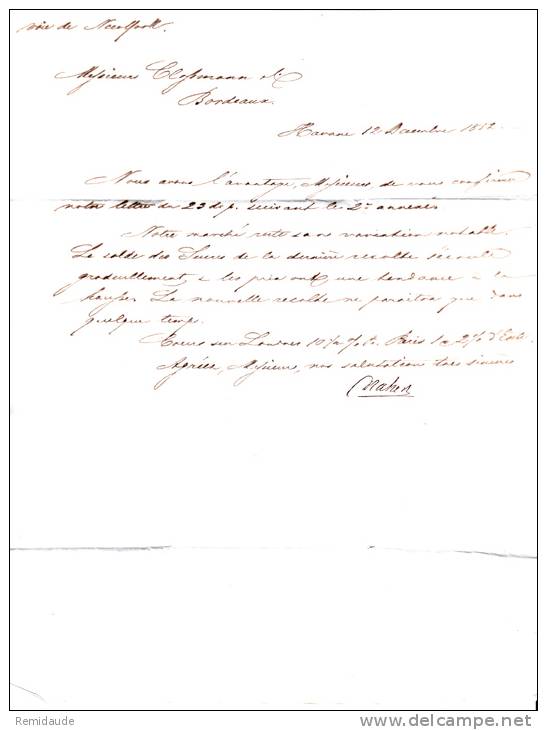 voie de NewYork.
Messieurs Clossmann & Cie
Bordeaux.
Havane 12 Decembre 1852
Nous avons l'avantage, Messieurs, de vous confirmer
notre lettre du 23 dp. suivant les 2 annexés
Notre marché reste sans variation notable.
Le solde des Sucres de la dernière recolte s'écoule
graduellement, & les prix ont une tendance à la
hausse. La nouvelle recolte ne paraitra que dans
quelque temps.
Cours sur Londres 10 % Paris 1 a 2% d'Esc.
Agréez, Messieurs, nos salutations très sincères
Remidaude
www.delcampe.net